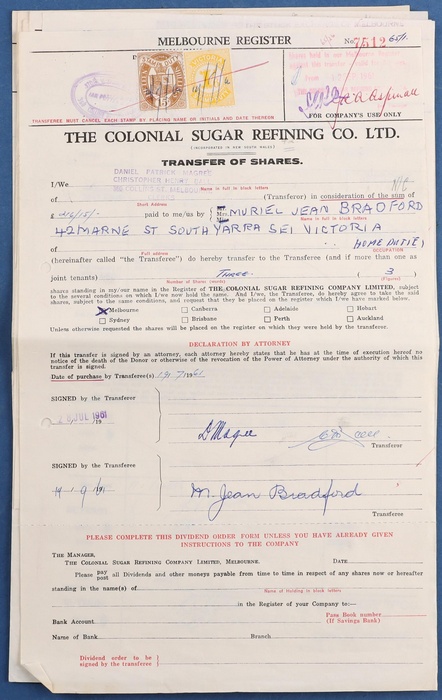 MELBOURNE REGISTER
No. 7512
TRANSFEREE MUST CANCEL EACH STAMP BY PLACING NAME OR INITIALS AND DATE THEREON
FOR COMPANY'S USE ONLY
THE COLONIAL SUGAR REFINING CO. LTD.
(INCORPORATED IN NEW SOUTH WALES)
TRANSFER OF SHARES.
DANIEL PATRICK MAGEE
CHRISTOPHER HENRY
I/We
Name in full in block letters
of (Transferor) in consideration of the sum of
Short Address
paid to me/us by Mrs. MURIEL JEAN BRADFORD
Name in full in block letters
42 MARNE ST SOUTH YARRA SE1 VICTORIA
of HOME DUTIES
Full address OCCUPATION
(hereinafter called "the Transferee") do hereby transfer to the Transferee (and if more than one as
joint tenants) THREE ( 3 )
Number of Shares (words) (Figures)
shares standing in my/our name in the Register of THE COLONIAL SUGAR REFINING COMPANY LIMITED, subject
to the several conditions on which I/we now hold the same. And I/we, the Transferee, do hereby agree to take the said
shares, subject to the same conditions, and request that they be placed on the register which I/we have marked below.
Melbourne Canberra Adelaide Hobart
Sydney Brisbane Perth Auckland
Unless otherwise requested the shares will be placed on the register on which they were held by the transferor.
DECLARATION BY ATTORNEY
If this transfer is signed by an attorney, each attorney hereby states that he has at the time of execution hereof no
notice of the death of the Donor or otherwise of the revocation of the Power of Attorney under the authority of which this
transfer is signed.
Date of purchase by Transferee(s) 19/7/1961
SIGNED by the Transferor
JUL 1961
D Magee
Transferor
SIGNED by the Transferee
M. Jean Bradford
Transferee
PLEASE COMPLETE THIS DIVIDEND ORDER FORM UNLESS YOU HAVE ALREADY GIVEN
INSTRUCTIONS TO THE COMPANY
THE MANAGER,
THE COLONIAL SUGAR REFINING COMPANY LIMITED, MELBOURNE. DATE
Please pay post all Dividends and other moneys payable from time to time in respect of any shares now or hereafter
standing in the name(s) of
Name of Holding in block letters
in the Register of your Company to:—
Bank Account Pass Book number (If Savings Bank)
Name of Bank Branch
Dividend order to be
signed by the transferee